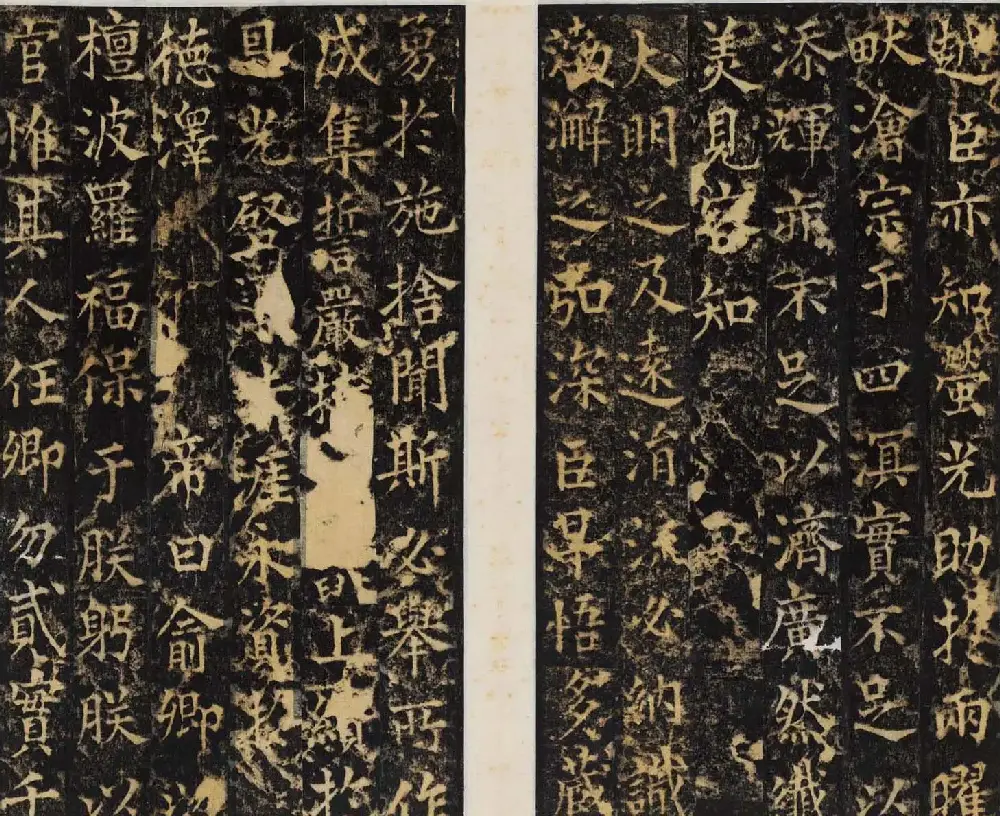 臣亦知螢光助扵兩曜
畎澮宗于四溟實不足以
添輝亦未足以濟廣然纖
美見容知
大明之及遠涓流必納識
渤澥之弘深臣早悟多藏
勇扵施捨聞斯必舉所作
成集誓嚴上願扵
具罄涯永資
德澤帝曰俞卿
檀波羅福保于朕躬朕以
官惟其人任卿勿貳實千